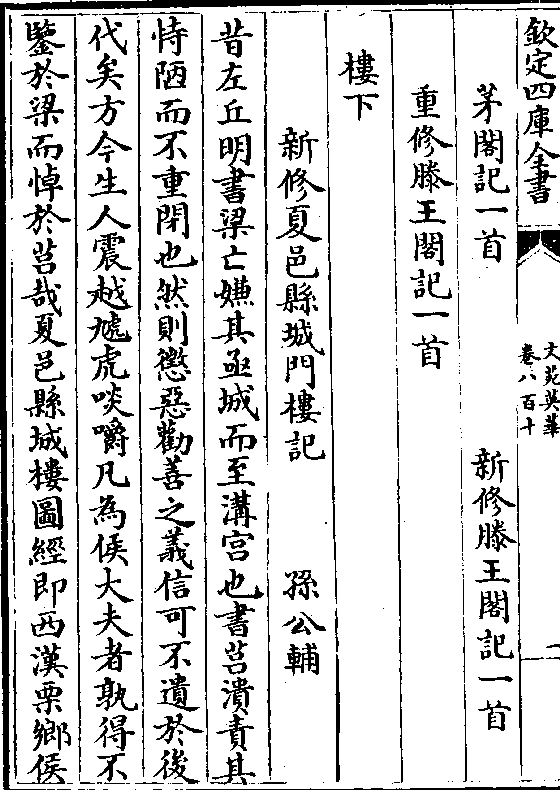 欽定四庫全書
文苑英華
卷八百十
一
茅閣記一首 新修滕王閣記一首
重修滕王閣記一首
樓下
新修夏邑縣城門樓記 孫公輔
昔左丘明書梁亡嫌其亟城而至溝宫也書莒潰責其
恃陋而不重閉也然則懲惡勸善之義信可不遺於後
代矣方今生人震越虓虎啖嚼凡為侯大夫者孰得不
鑒於梁而悼於莒哉夏邑縣城樓圖經即西漢栗鄉侯